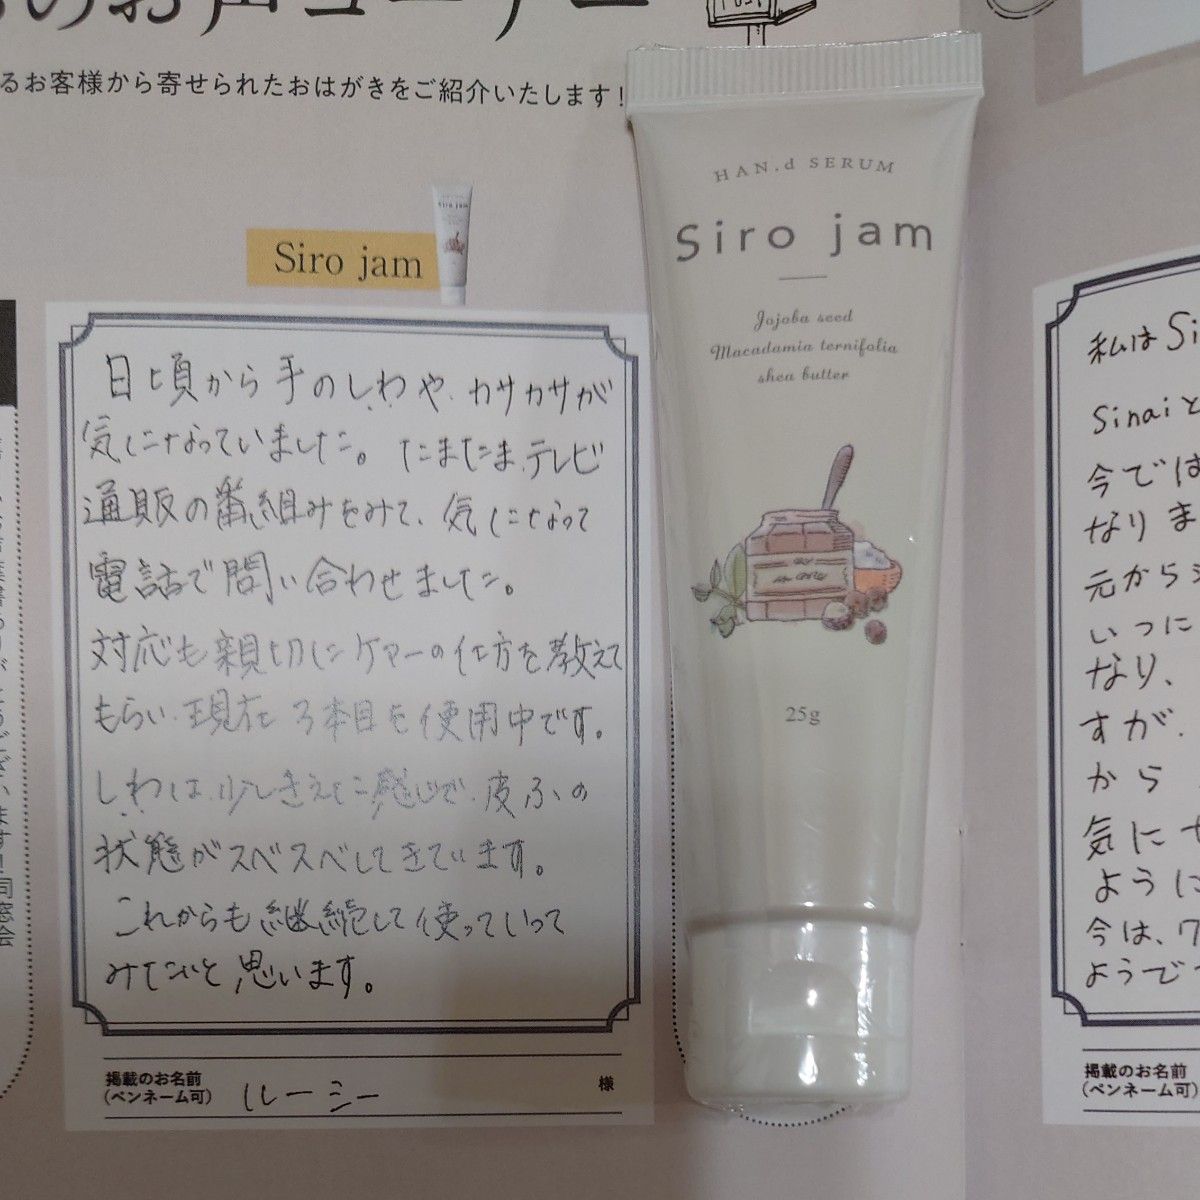 のお声コーナー
るお客様から寄せられたおはがきをご紹介いたします！
Siro jam
日頃から手のしわや、カサカサが
気になっていました。たまたま、テレビ
通販の番組みをみて、気になって
電話で問い合わせました。
対応も親切にケアーの仕方を教えて
もらい、現在3本目を使用中です。
しわは、少しきえた感じで、皮ふの
状態がスベスベしてきています。
これからも継続して使っていって
みたいと思います。
掲載のお名前
(ペンネーム可)
ルーシー
様
HAN.d SERUM
Siro jam
Jojoba seed
Macadamia ternifolia
shea butter
25g
私はSi
Sinaiと
今では
なりま
元から
いつに
なり、
すが、
から
気にせ
ように
今は、
ようで
掲載のお名前
(ペンネーム可)
同窓会